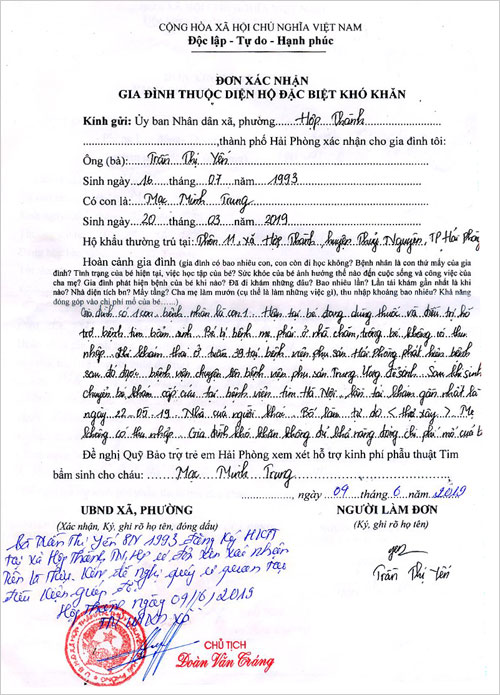 CỘNG HÒA XÃ HỘI CHỦ NGHĨA VIỆT NAM
Độc lập - Tự do - Hạnh phúc
ĐƠN XÁC NHẬN
GIA ĐÌNH THUỘC DIỆN HỘ ĐẶC BIỆT KHÓ KHĂN
Kính gửi: Ủy ban Nhân dân xã, phường Hợp Thành
,thành phố Hải Phòng xác nhận cho gia đình tôi:
Ông (bà): Trần Thị Yến
Sinh ngày 16 tháng 07 năm 1993
Có con là: Mạc Minh Trung
Sinh ngày 20 tháng 03 năm 2019
Hộ khẩu thường trú tại: Thôn 11 xã Hợp Thành, huyện Thuỷ Nguyên, TP Hải Phòng
Hoàn cảnh gia đình (gia đình có bao nhiêu con, con còn đi học không? Bệnh nhân là con thứ mấy của gia
đình? Tình trạng của bé hiện tại, việc học tập của bé? Sức khỏe của bé ảnh hưởng thế nào đến cuộc sống và công việc của
cha mẹ? Gia đình phát hiện bệnh của bé khi nào? Đã đi khám những đâu? Bao nhiêu lần? Lần tái khám gần nhất là khi
nào? Nhà diện tích bn? Mấy tầng? Cha mẹ làm mướn (cụ thể là làm những việc gì), thu nhập khoảng bao nhiêu? Khả năng
đóng góp vào chi phí mổ của bé….)
Gia đình có 1 con, bệnh nhân là con 1. Hiện tại bé đang dùng thuốc và điều trị hỗ
trợ bệnh tim bẩm sinh. Bé bị bệnh mẹ phải ở nhà chăm, trông bé không có thu
nhập. Khi khám thai ở tuần 39 tại bệnh viện phụ sản Hải Phòng phát hiện bệnh
sau đó được bệnh viện chuyển lên bệnh viện phụ sản Trung Ương để sinh. Sau khi sinh
chuyển bé khám cấp cứu tại bệnh viện tim Hà Nội. lần tái khám gần nhất là
ngày 22-05-19 Nhà của người khác Bố làm tự do < thợ xây > Mẹ
không có thu nhập. Gia đình khó khăn không đủ khả năng đóng chi phí mổ của bé
Đề nghị Quỹ Bảo trợ trẻ em Hải Phòng xem xét hỗ trợ kinh phí phẫu thuật Tim
bẩm sinh cho cháu: Mạc Minh Trung
, ngày 09 tháng 6 năm 2019
UBND XÃ, PHƯỜNG
(Xác nhận, Ký, ghi rõ họ tên, đóng dấu)
NGƯỜI LÀM ĐƠN
(Ký, ghi rõ họ tên)
Trần Thị Yến
Bà Trần Thị Yến SN 1993 đăng ký HKTT
tại xã Hợp Thành, TN, HP
Kính đề nghị quý cơ quan tạo
điều kiện giúp đỡ
Hợp Thành ngày 09/6/2019
TM UBND xã
CHỦ TỊCH
Đoàn Văn Tráng